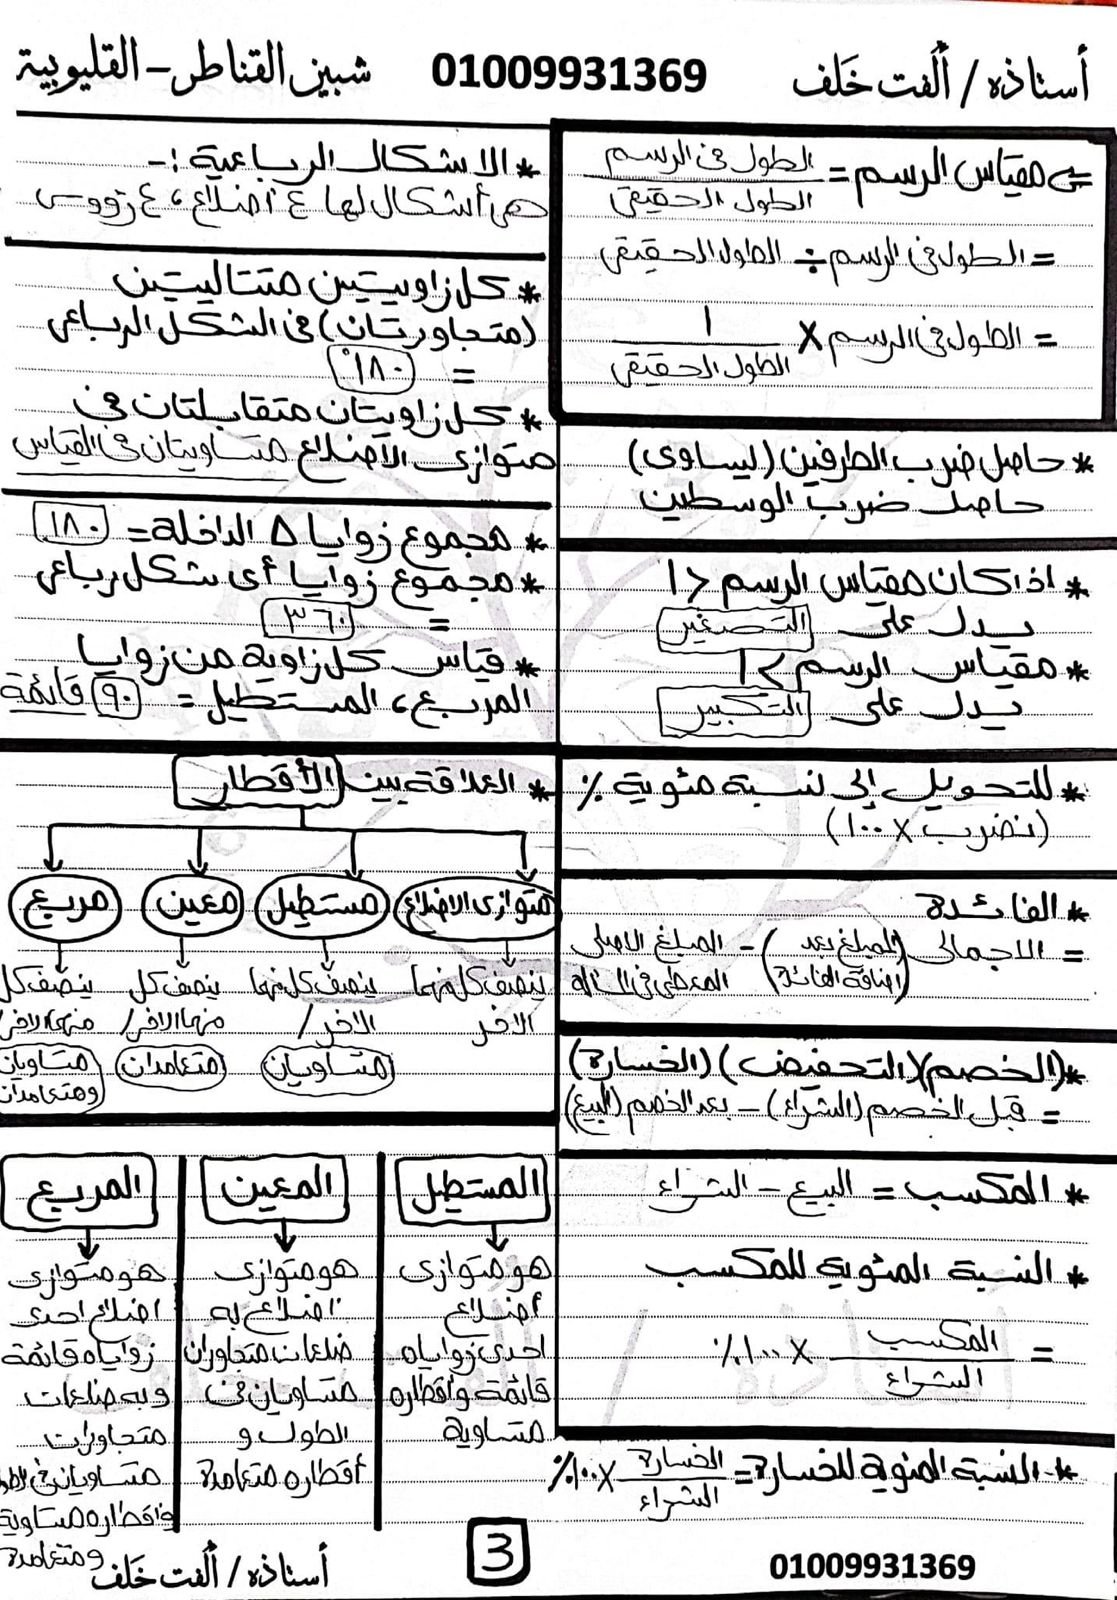 أستاذه / ألفت خلف 01009931369 شبين القناطر - القليوبية
مقياس الرسم = الطول فى الرسم / الطول الحقيقى
= الطول فى الرسم ÷ الطول الحقيقى
= الطول فى الرسم × ١ / الطول الحقيقى
* حاصل ضرب الطرفين (يساوى)
حاصل ضرب الوسطين
* اذا كان مقياس الرسم > ١
يدل على التصغير
* مقياس الرسم < ١
يدل على التكبير
* للتحويل إلى نسبة مئوية ٪
(نضرب × ١٠٠)
* الفائدة
= الاجمالى (المبلغ بعد اضافة الفائدة) - المبلغ الاصلى
* (الخصم) (التخفيض) (الخسارة)
= قبل الخصم (الشراء) - بعد الخصم (البيع)
* المكسب = البيع - الشراء
* النسبة المئوية للمكسب
= المكسب / الشراء × ١٠٠٪
* النسبة المئوية للخسارة = الخسارة / الشراء × ١٠٠٪
* الاشكال الرباعية :-
هى أشكال لها ٤ اضلاع ، ٤ رؤوس
* كل زاويتين متتاليتين
(متجاورتان) فى الشكل الرباعى
= ١٨٠°
* كل زاويتان متقابلتان فى
متوازى الأضلاع متساويتان فى القياس
* مجموع زوايا Δ الداخلة = ١٨٠
* مجموع زوايا أى شكل رباعى
= ٣٦٠
* قياس كل زاوية من زوايا
المربع ، المستطيل = ٩٠ قائمة
* العلاقة بين الأقطار
متوازى الاضلاع
ينصف كل منهما
الاخر
مستطيل
ينصف كل منهما
الاخر /
متساويان
معين
ينصف كل
منهما الاخر /
متعامدان
مربع
ينصف كل
منهما الاخر /
متساويان
ومتعامدان
المستطيل
هو متوازى
أضلاع
احدى زواياه
قائمة واقطاره
متساوية
المعين
هو متوازى
اضلاع به
ضلعان متجاوران
متساويان فى
الطول و
أقطاره متعامدة
المربع
هو متوازى
اضلاع احدى
زواياه قائمة
وبه ضلعان
متجاوران
متساويان فى
واقطاره متساوية
ومتعامدة
01009931369 3 أستاذه / ألفت خلف